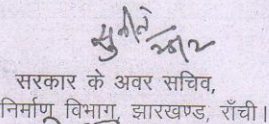 सरकार के अवर सचिव,
निर्माण विभाग, झारखण्ड, राँची।